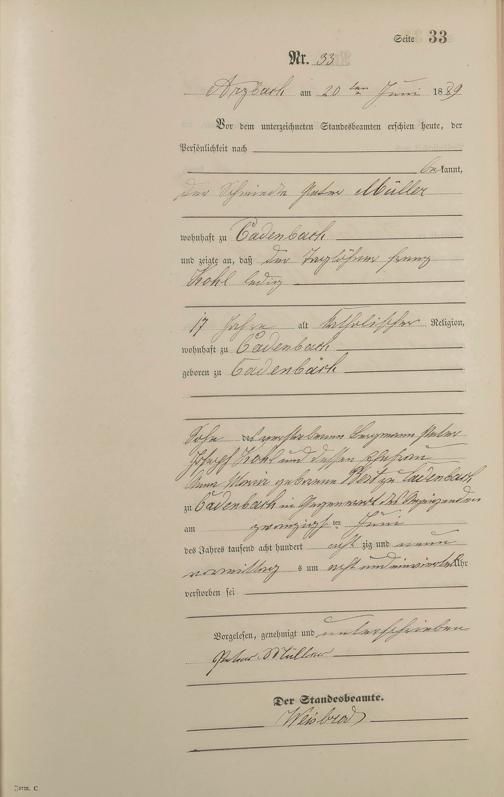 Seite 33
Nr. 33
Arzbach am 20 ten Juni 1889
Vor dem unterzeichneten Standesbeamten erschien heute, der
Persönlichkeit nach
bekannt,
der Schmied Peter Müller
wohnhaft zu Cadenbach
und zeigte an, daß der Taglöhner Franz
Kohl ledig
17 Jahre alt katholischer Religion,
wohnhaft zu Cadenbach
geboren zu Cadenbach
Sohn des verstorbenen Bergmann Peter
Josef Kohl und dessen Ehefrau
Anna Maria geborene zu Cadenbach
zu Cadenbach in Gegenwart des Anzeigenden
am zwanzigsten Juni
des Jahres tausend acht hundert achtzig und neun
vormittags um acht und einviertel Uhr
verstorben sei
Vorgelesen, genehmigt und unterschrieben
Peter Müller
Der Standesbeamte.
Weisbrod
Form. C